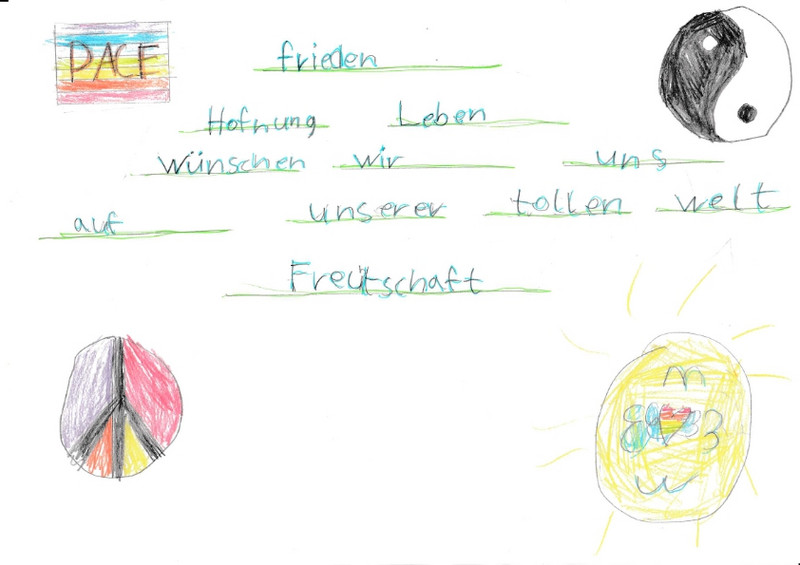 PACE
frieden
Hofnung Leben
wünschen wir uns
auf unserer tollen welt
Freutschaft